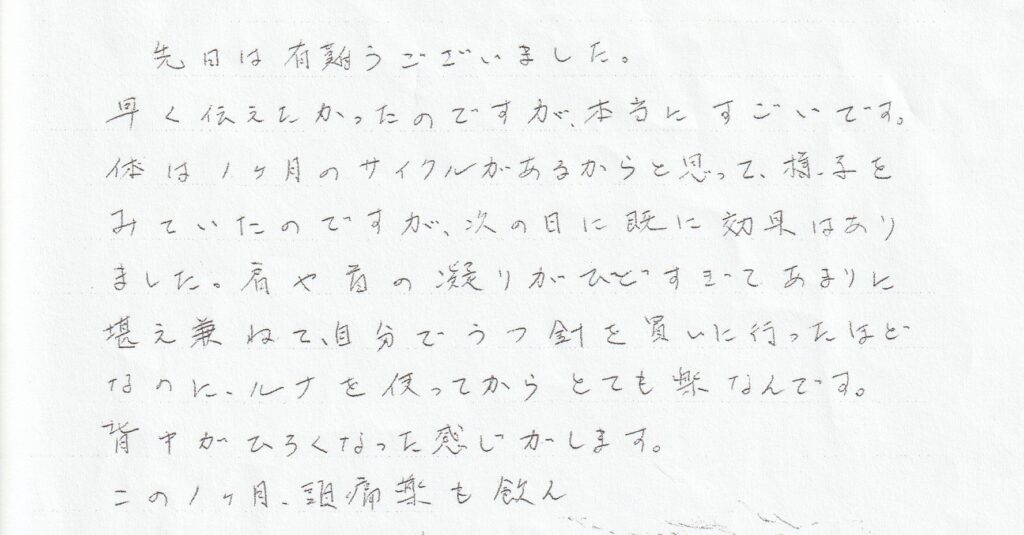 先日は有難うございました。
早く伝えたかったのですが、本当にすごいです。
体は1ヶ月のサイクルがあるからと思って、様子を
みていたのですが、次の日に既に効果はあり
ました。肩や首の凝りがひどすぎてあまりに
堪え兼ねて、自分でうつ針を買いに行ったほど
なのに、ルナを使ってからとても楽なんです。
背中がひろくなった感じがします。
この1ヶ月、頭痛薬も飲ん